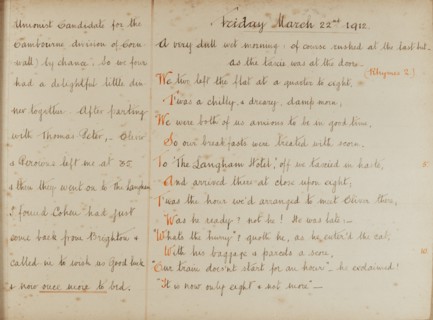 Unionist Candidate for the
Cambourne division of Corn-
wall) by chance. So we four
had a delightful little din-
ner together. After parting
with Thomas Peter, Oliver
& Acrowns left me at 32
& then they went on to the Langham
I found Cohen had just
come back from Brighton &
called me to wish us Good luck
& now once more to bed.
Friday March 22nd 1912.
A very dull wet morning: of course rushed at the last but
as the taxi was at the door.
(Rhymes 2.)
We two left the flat at a quarter to eight,
'Twas a chilly, & dreary, damp morn,
We were both of us anxious to be in good time,
So our breakfasts were treated with scorn.
To "The Langham Hotel," off we taxied in haste,
And arrived there at close upon eight;
'Twas the hour we'd arranged to meet Oliver then,
Was he ready? not he! He was late:—
"Whats the hurry"? quoth he, as he enter'd the cab,
With his baggage & parcels a score,
"Our train doesn't start for an hour"— he exclaimed!
"It is now only eight & not more"—